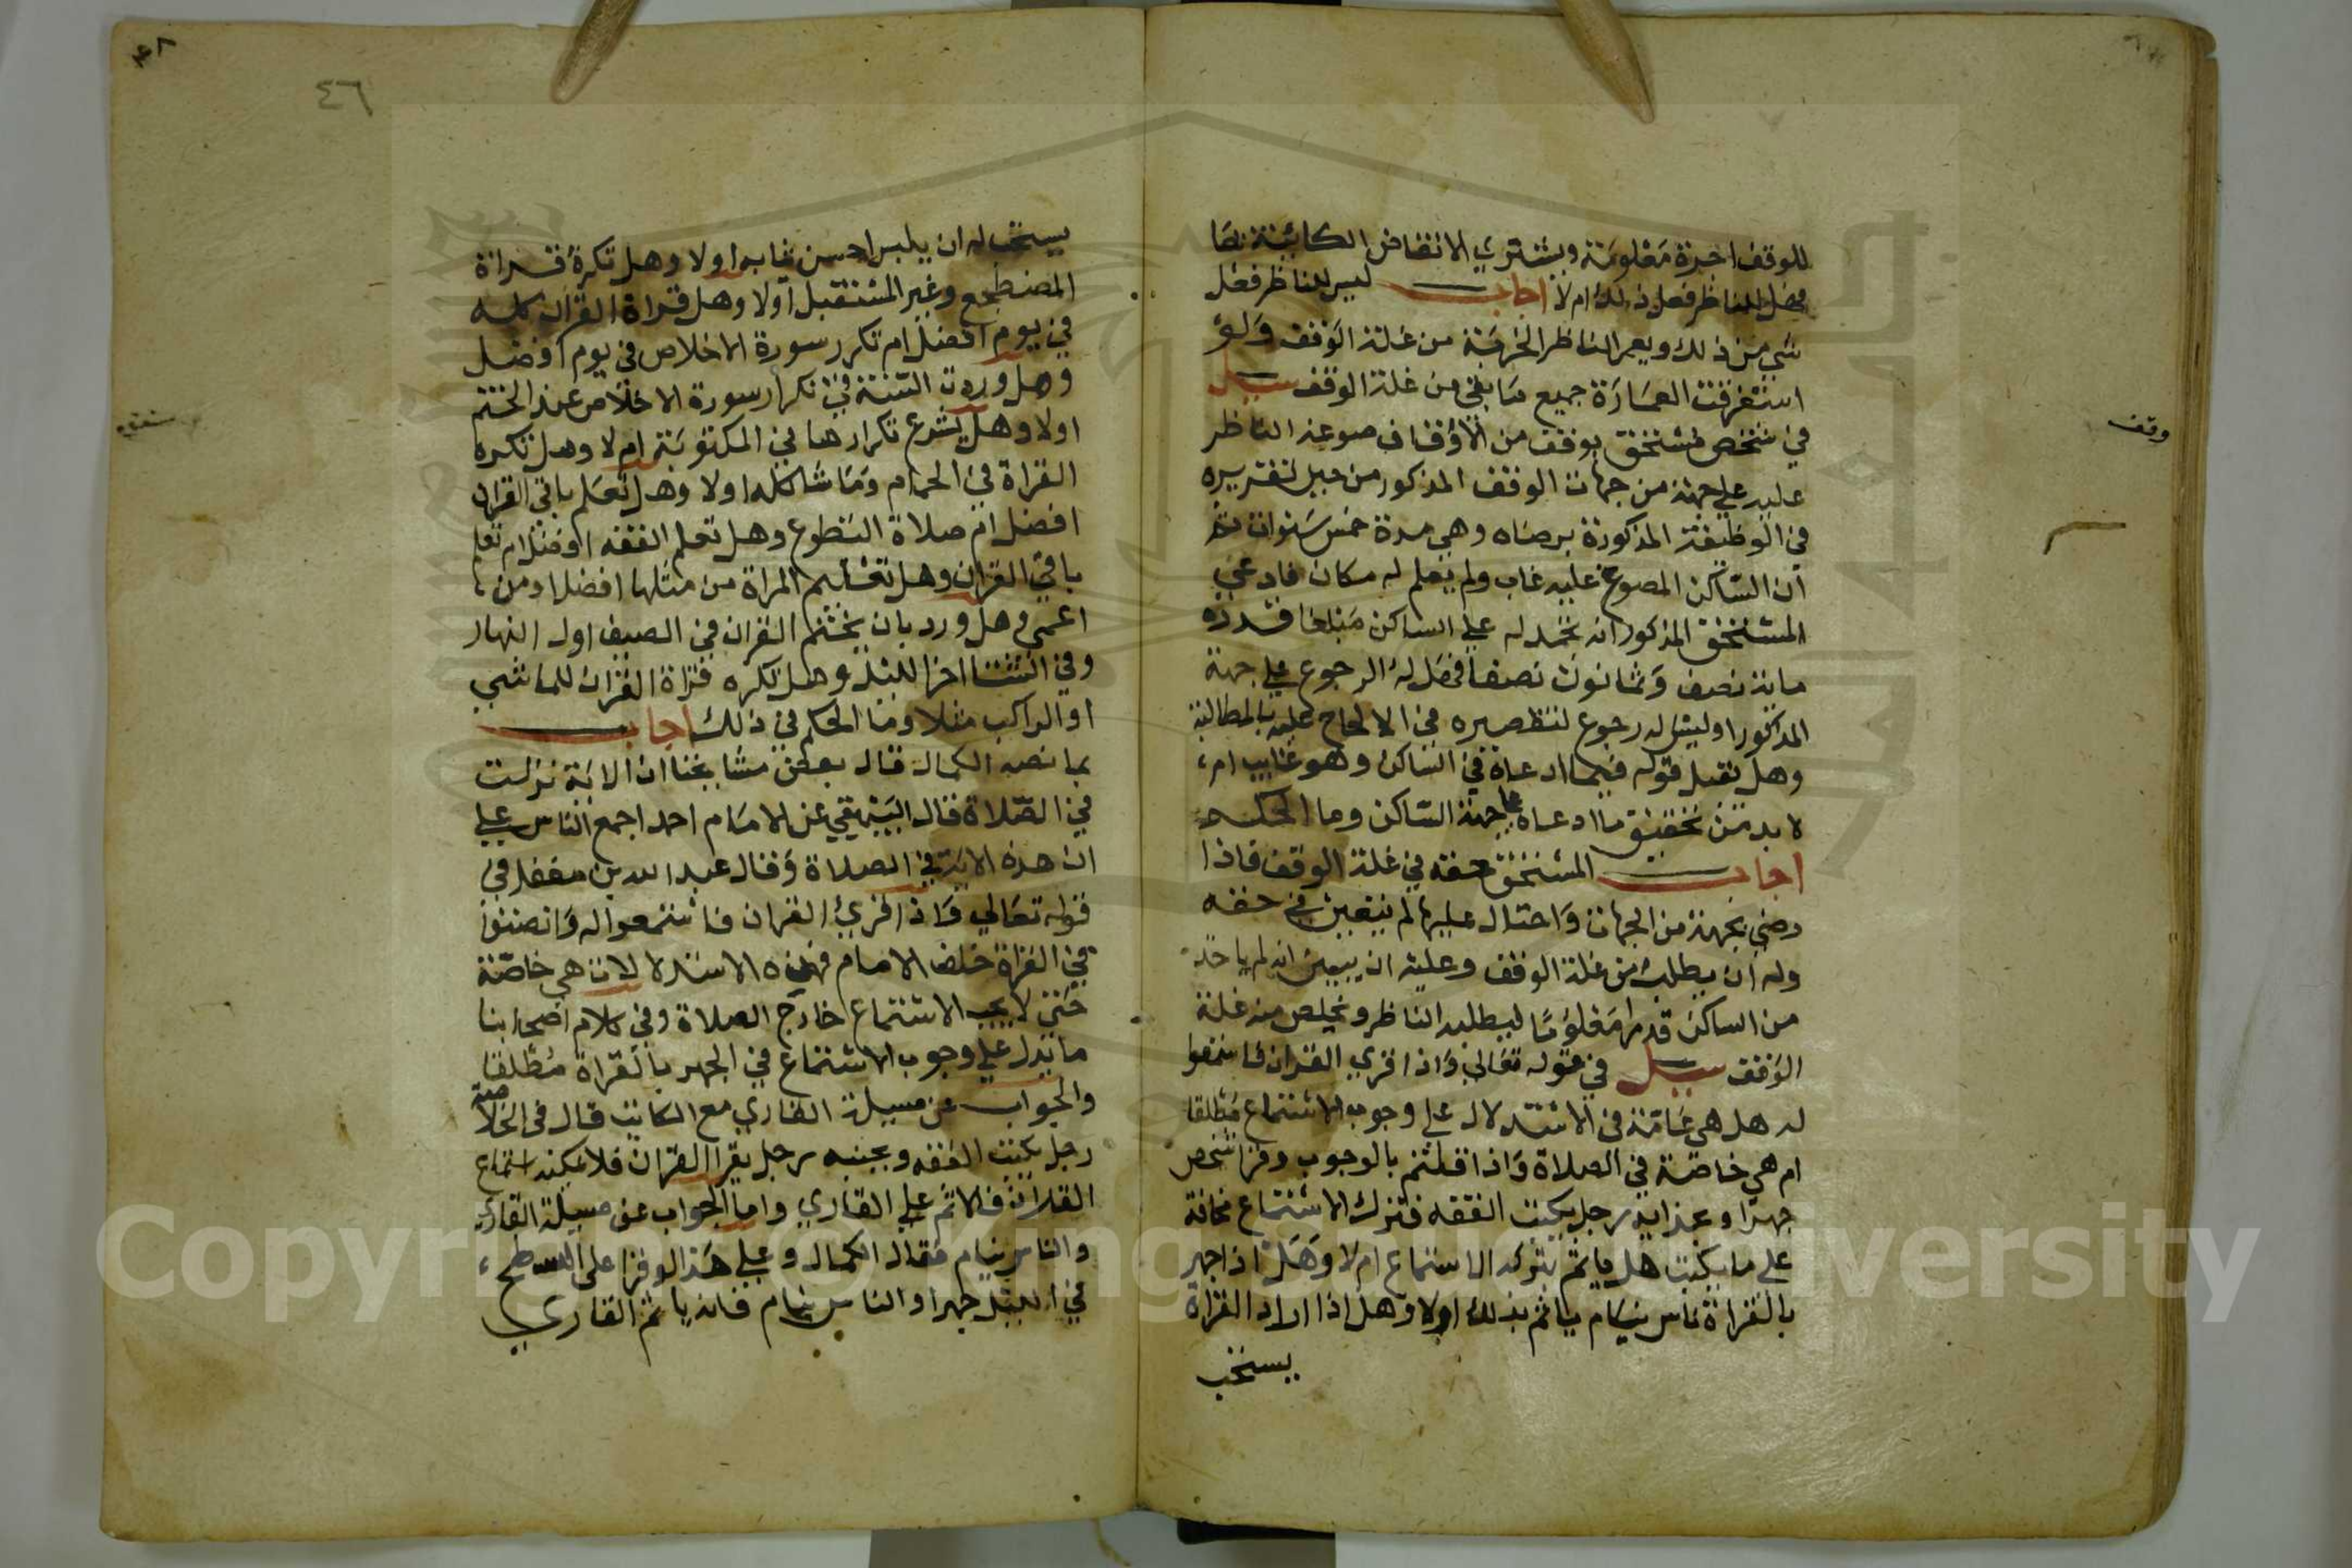 للوقف اجرة معلومة ويشتري الانقاض الكائنة بها
فهل للناظر فعل ذلك ام لا اجاب ليس للناظر فعل
شي من ذلك ويعمر الناظر الخربة من غلة الوقف ولو
استغرقت العمارة جميع ما بقي من غلة الوقف سيل
في شخص مستحق بوقف من الاوقاف صوعه الناظر
عليه علي جهة من جهات الوقف المذكور من حين تقريره
في الوظيفة المذكورة برضاه وهي مدة خمس سنوات ثم
ان الساكن المصوع عليه غاب ولم يعلم له مكان فادعي
المستحق المذكور انه تجمد له علي الساكن مبلغا قدره
ماية نصف وثمانون نصفا فهل له الرجوع علي جهة
المذكور او ليس له رجوع لتقصيره في الالحاح عليه بالمطالبة
وهل تقبل قوله فيما ادعاه في الساكن وهو غايب ام
لا بد من تحقيق ما ادعاه علي جهة الساكن وما الحكم
اجاب المستحق حقه في غلة الوقف فاذا
رضي بجهة من الجهات واحتال عليها لم يتعين في حقه
وله ان يطلب من غلة الوقف وعليه ان يبين انه لم ياخذ
من الساكن قدرا معلوما ليطلبه الناظر ويخلص منه غلة
الوقف سيل في قوله تعالي واذا قري القران فاستمعوا
له هل هي عامة في الاستدلال علي وجوب الاستماع مطلقا
ام هي خاصة في الصلاة واذا قلتم بالوجوب وقرا شخص
جهرا وبحذايه رجل يكتب الفقه فترك الاستماع مخافة
علي ما يكتب هل ياثم بترك الاستماع ام لا وهل اذا جهر
بالقراة ناس نيام ياثم بذلك اولا وهل اذا اراد القراة
يستحب
وقف
٤٦
يستحب له ان يلبس احسن ثيابه اولا وهل تكره قراة
المضطجع وغير المستقبل اولا وهل قراة القران كله
في يوم افضل ام تكرر سورة الاخلاص في يوم افضل
وهل وردت السنة في تكرار سورة الاخلاص عند الختم
اولا وهل يشرع تكرارها في المكتوبة ام لا وهل تكره
القراة في الحمام وما شاكله اولا وهل تعلم باقي القران
افضل ام صلاة التطوع وهل تعلم الفقه افضل ام تعلم
باقي القران وهل تعليم المراة من مثلها افضل او من
اعمي وهل ورد بان يختم القران في الصيف اول النهار
وفي الشتا اخر الليل وهل تكره قراة القران للماشي
او الراكب مثلا وما الحكم في ذلك اجاب
بما نصه الكمال قال بعض مشايخنا ان الاية نزلت
في الصلاة قال البيهقي عن الامام احمد اجمع الناس علي
ان هذه الاية في الصلاة وقال عبد الله بن مغفل في
قوله تعالي واذا قري القران فاستمعوا له وانصتوا
في القراة خلف الامام فهذه الاستدلالات هي خاصة
حتي لا يجب الاستماع خارج الصلاة وفي كلام اصحابنا
ما يدل علي وجوب الاستماع في الجهر بالقراة مطلقا
والجواب عن مسيلة القاري مع الكاتب قال في الخلاصة
رجل يكتب الفقه وبجنبه رجل يقرا القران فلا يمكنه استماع
القران فالاثم علي القاري واما الجواب عن مسيلة القاري
والناس نيام فقال الكمال وعلي هذا لو قرا علي السطح
في الليل جهرا والناس نيام فانه ياثم القاري
Copyright © King Saud University